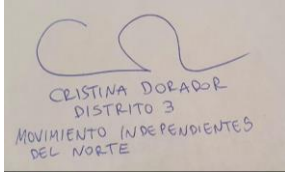 CRISTINA DORADOR
DISTRITO 3
MOVIMIENTO INDEPENDIENTES
DEL NORTE